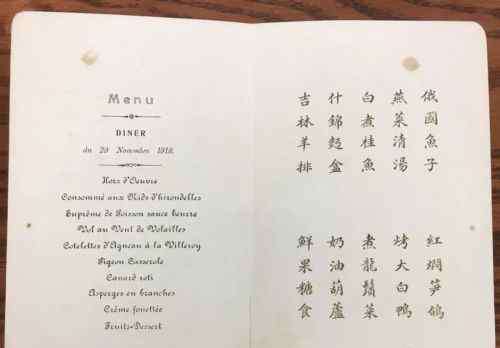 Menu
DINER
du 20 Novembre 1918.
Hors d'Oeuvre
Consommé aux Nids d'hirondelles
Suprême de Poisson sauce beurre
Vol au Vent de Volailles
Cotelettes d'Agneau à la Villeroy
Pigeon Casserole
Canard roti
Asperges en branches
Crême fouettée
Fruits-Dessert
俄國魚子
燕菜清湯
白煮桂魚
什錦麪盒
吉林羊排
紅燜笋鴿
烤大白鴨
煮龍鬚菜
奶油葫蘆
鮮果糖食